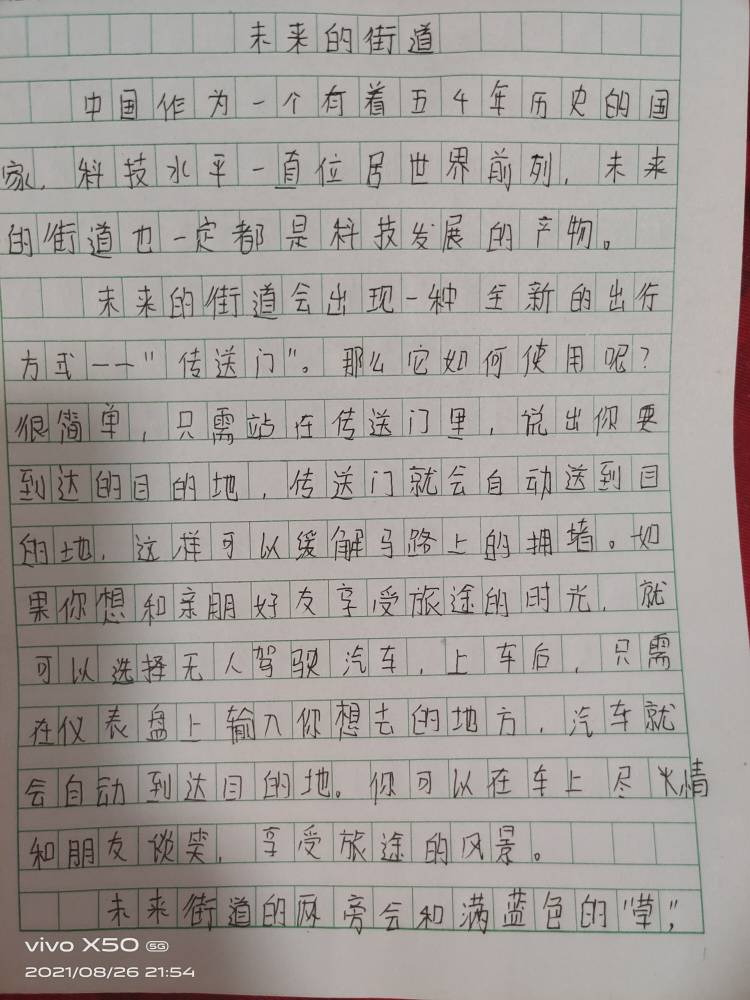 未来的街道
中国作为一个有着五千年历史的国
家，科技水平一直位居世界前列，未来
的街道也一定都是科技发展的产物。
未来的街道会出现一种全新的出行
方式——“传送门”。那么它如何使用呢？
很简单，只需站在传送门里，说出你要
到达的目的地，传送门就会自动送到目
的地，这样可以缓解马路上的拥堵。如
果你想和亲朋好友享受旅途的时光，就
可以选择无人驾驶汽车，上车后，只需
在仪表盘上输入你想去的地方，汽车就
会自动到达目的地。你可以在车上尽情
和朋友谈笑，享受旅途的风景。
未来街道的两旁会和满蓝色的“草”，
vivo X50 5G
2021/08/26 21:54